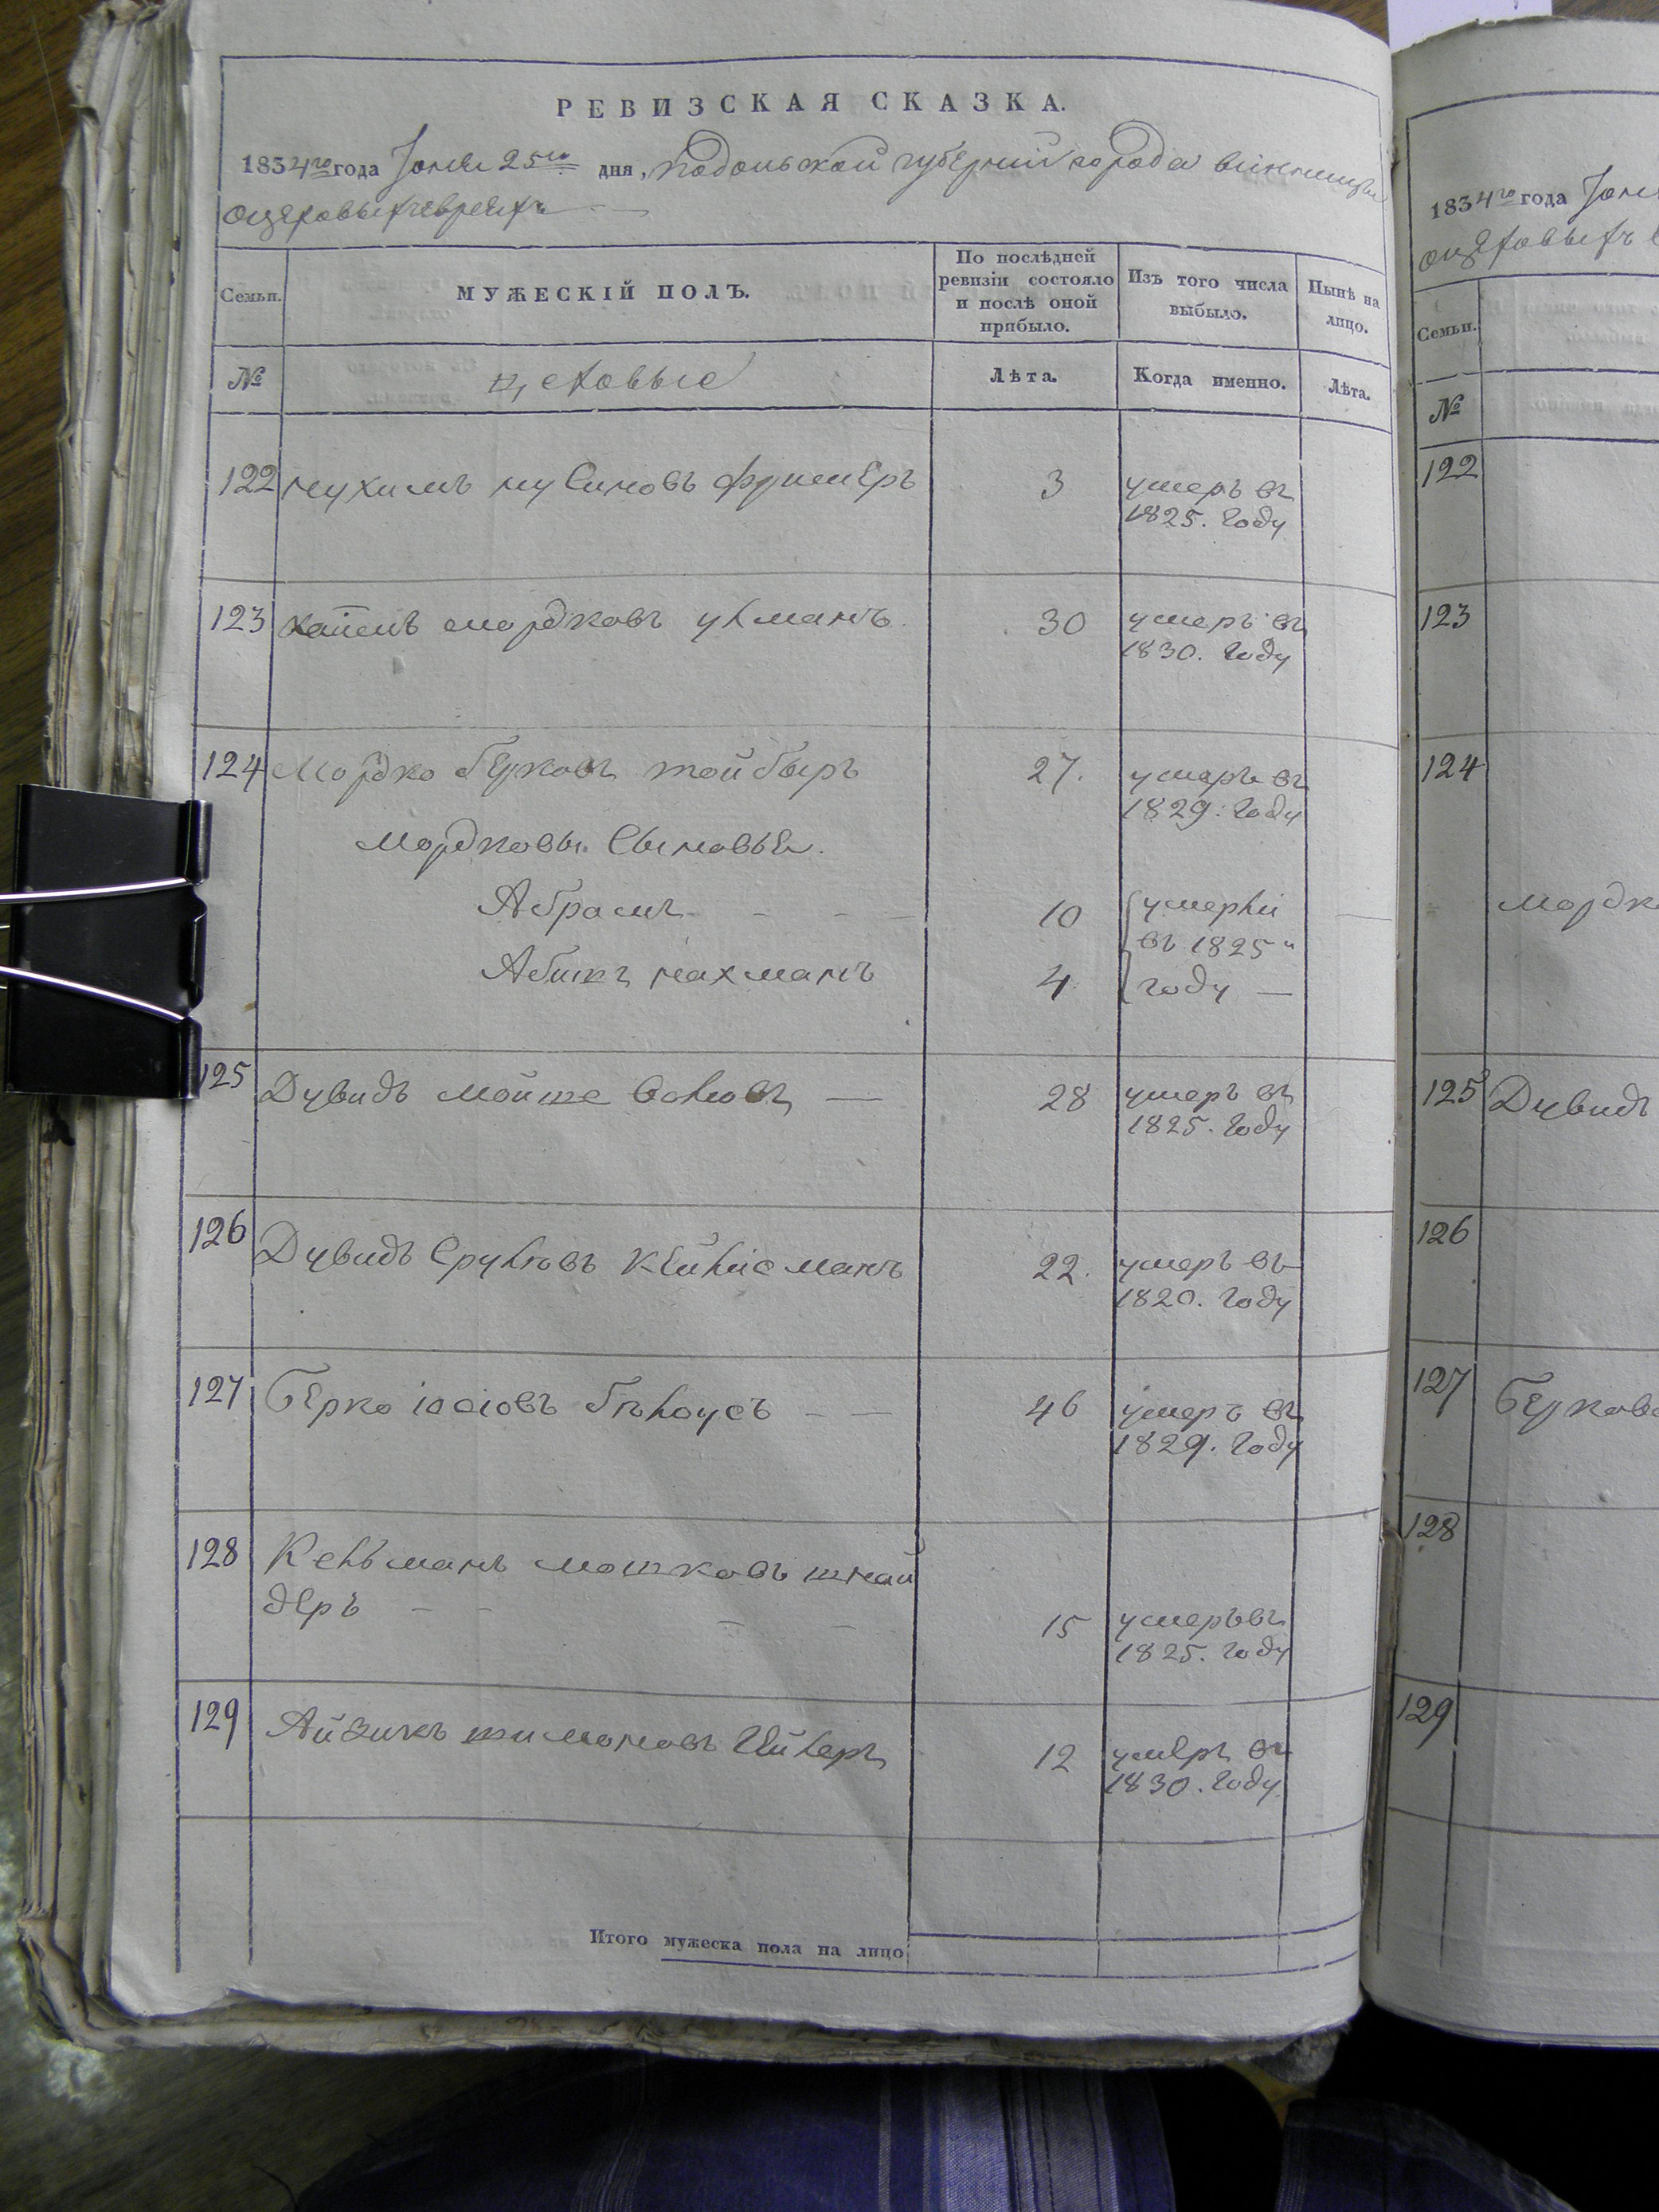 РЕВИЗСКАЯ СКАЗКА.
1834го года Іюня 25го дня, Подольской губерніи города винницы
оцеховыхъ евреяхъ
Семьи.
МУЖЕСКІЙ ПОЛЪ.
По послѣдней
ревизіи состояло
и послѣ оной
прибыло.
Изъ того числа
выбыло.
Нынѣ на
лицо.
№
цеховые
Лѣта.
Когда именно.
Лѣта.
122 нухимъ нусиновъ 3 умеръ въ
1825. году
123 мордковъ ухманъ 30 умеръ въ
1830. году
124 Мордко берковъ тойбыръ 27. умеръ въ
1829. году
Мордковы сыновья.
Абрамъ 10 умерли
въ 1825
Абишъ нахманъ 4 году
125 Дувидъ мойше 28 умеръ въ
1825. году
126 Дувидъ Срулювъ Клейнисманъ 22. умеръ въ
1820. году
127 Берко іосіовъ бѣлоусъ 46 умеръ въ
1829. году
128 Кельманъ мошковъ шнай
деръ 15 умеръ въ
1825. году
129 Айзикъ шимоновъ 12 умеръ въ
1830. году
Итого мужеска пола на лицо
1834го года Іюн
оцеховыхъ е
Семьи.
№
122
123
124
мордк
125 Дувидъ
126
127 Беркова
128
129